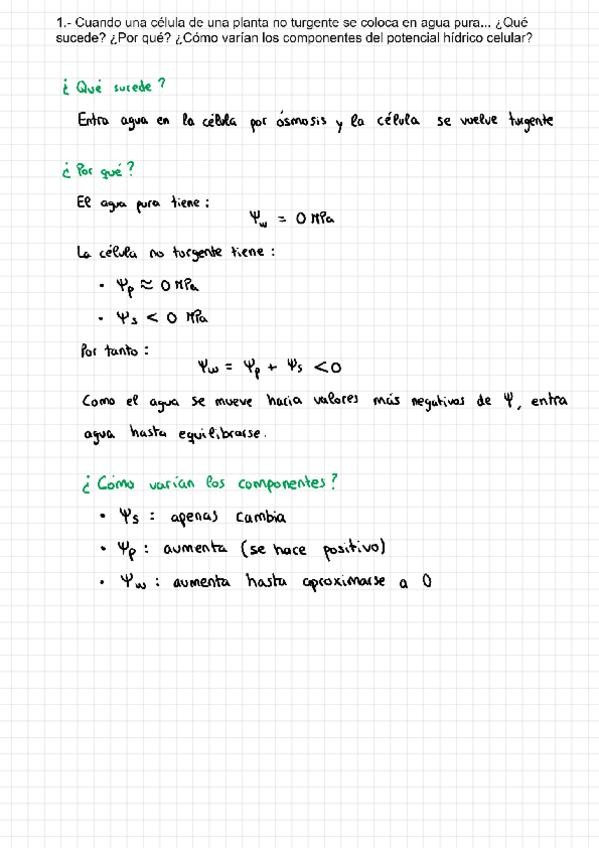 1.- Cuando una célula de una planta no turgente se coloca en agua pura... ¿Qué
sucede? ¿Por qué? ¿Cómo varían los componentes del potencial hídrico celular?
¿Qué sucede?
Entra agua en la célula por ósmosis y la célula se vuelve turgente
¿Por qué?
El agua pura tiene:
Ψw = 0 MPa
La célula no turgente tiene:
• Ψp ≈ 0 MPa
• Ψs < 0 MPa
Por tanto:
Ψw = Ψp + Ψs < 0
Como el agua se mueve hacia valores más negativos de Ψ, entra
agua hasta equilibrarse.
¿Cómo varían los componentes?
• Ψs : apenas cambia
• Ψp : aumenta (se hace positivo)
• Ψw : aumenta hasta aproximarse a 0